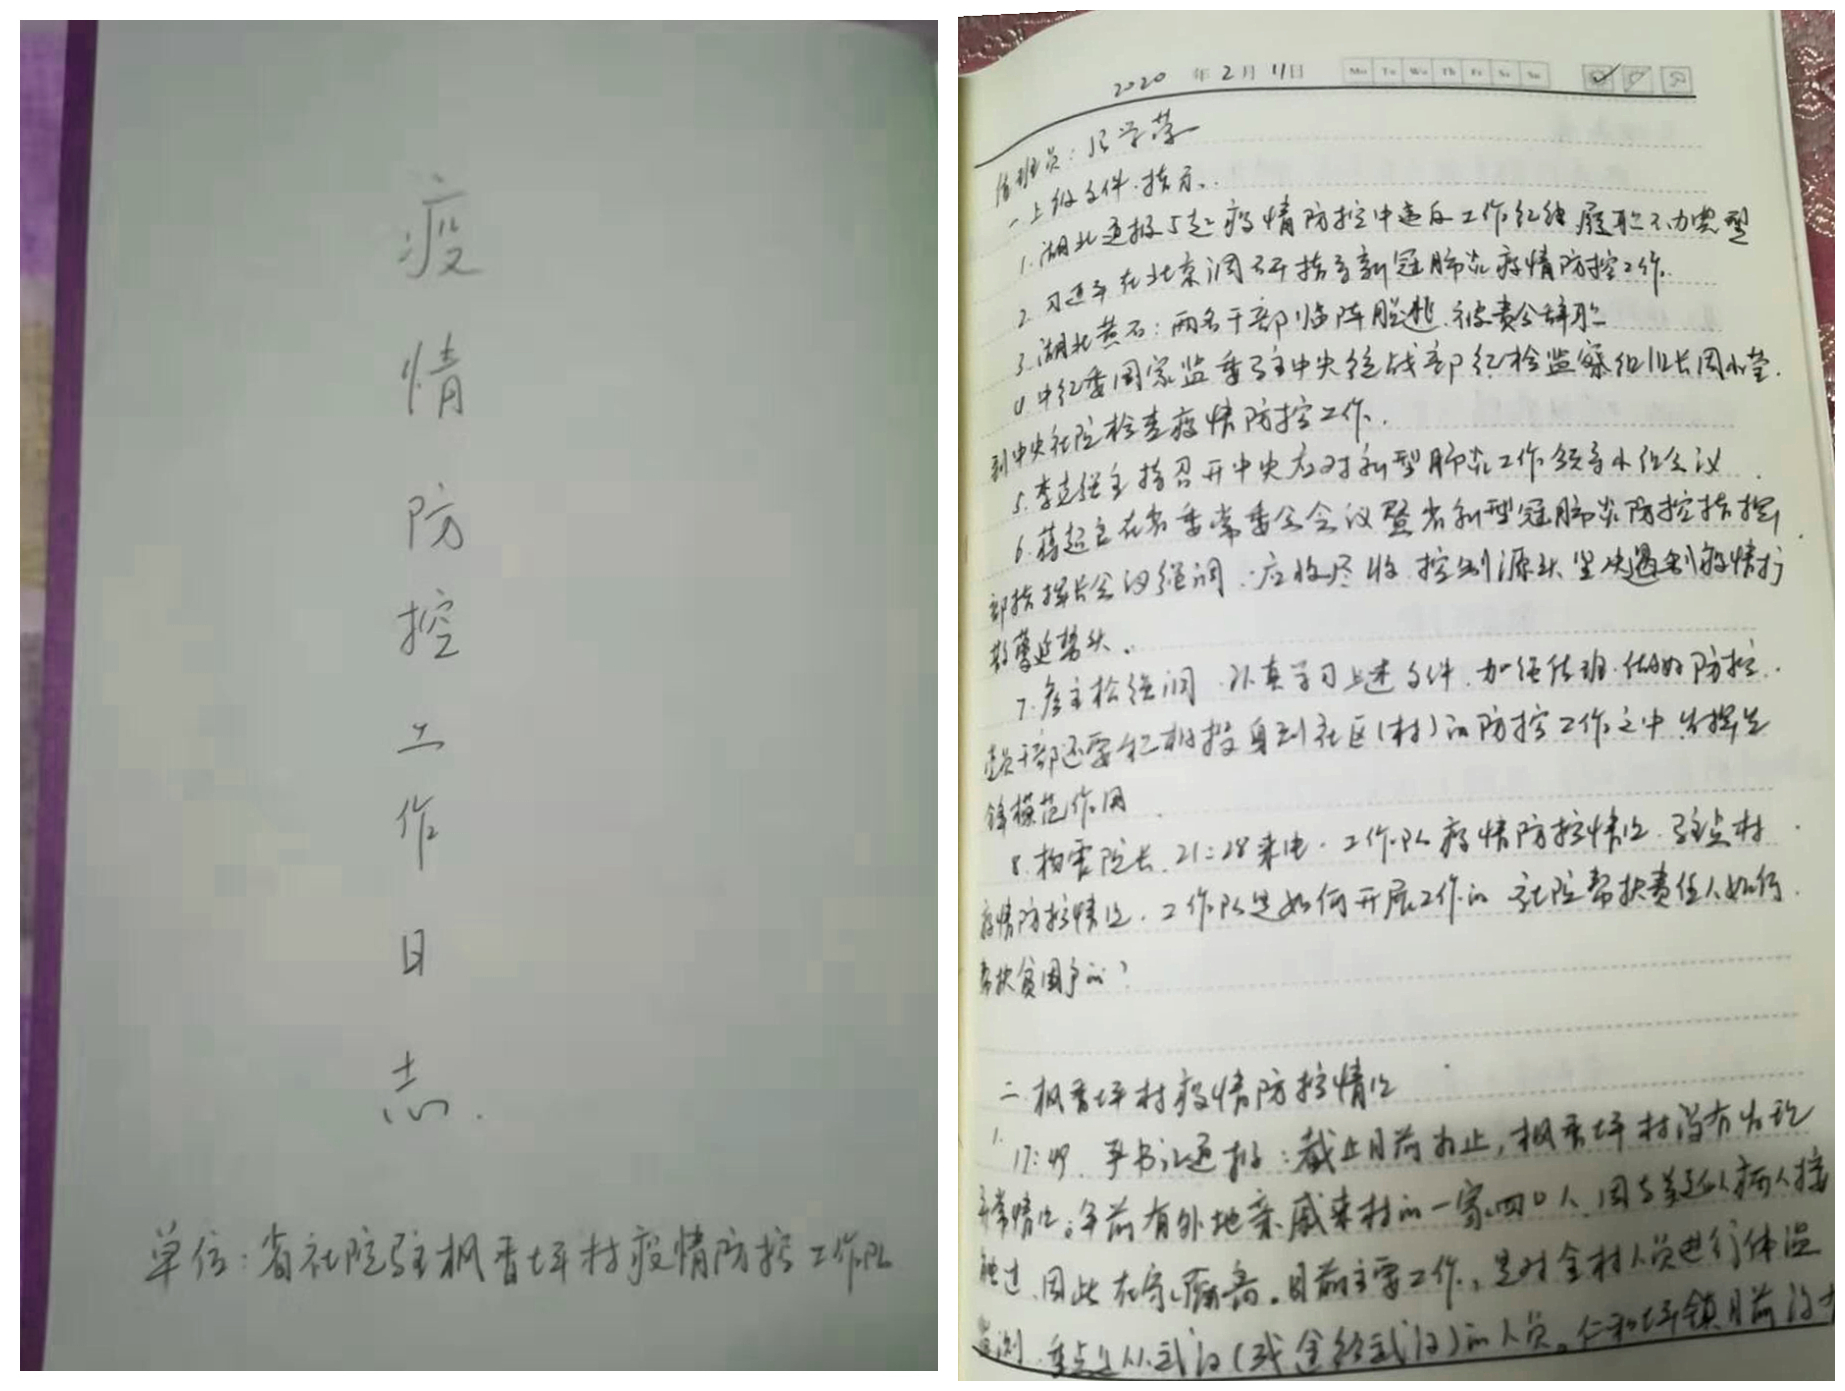 疫情防控工作日志.
单位:省社院驻枫香坪村疫情防控工作队
2020 年 2 月 11 日 Mo Tu We Th Fr Sa Su
值班员:学荣
一上级文件.指示.
1.湖北通报5起疫情防控中违反工作纪律履职不力典型
2.习近平在北京调研指导新冠肺炎疫情防控工作.
3.湖北黄石:两名干部临阵脱逃.被责令辞职
4.中纪委国家监委驻中央统战部纪检监察组组长周小莹.
到中央社院检查疫情防控工作.
5.李克强主持召开中央应对新型肺炎工作领导小组会议
6.蒋超良在省委常委会会议暨省新型冠肺炎防控指挥
部指挥长会议强调.应收尽收 控制源头 坚决遏制疫情扩
散蔓延势头.
7.主松强调.认真学习上述文件.加强值班.做好防控.
党员干部还要积极投身到社区(村)的防控工作之中 发挥先
锋模范作用
8.杨霖院长.21:28来电.工作队疫情防控情况.驻点村
疫情防控情况.工作队是如何开展工作的 社院帮扶责任人如何
帮扶贫困户的?
二.枫香坪村疫情防控情况
1.
17:49 书记通报:截止目前为止,枫香坪村没有发现
异常情况。年前有外地亲戚来村的一家四口人.因与人接
触过.因此在家隔离。目前主要工作,是对全村人员进行体温
监测.重点是从武汉(或途经武汉)的人员。仁和坪镇目前没有